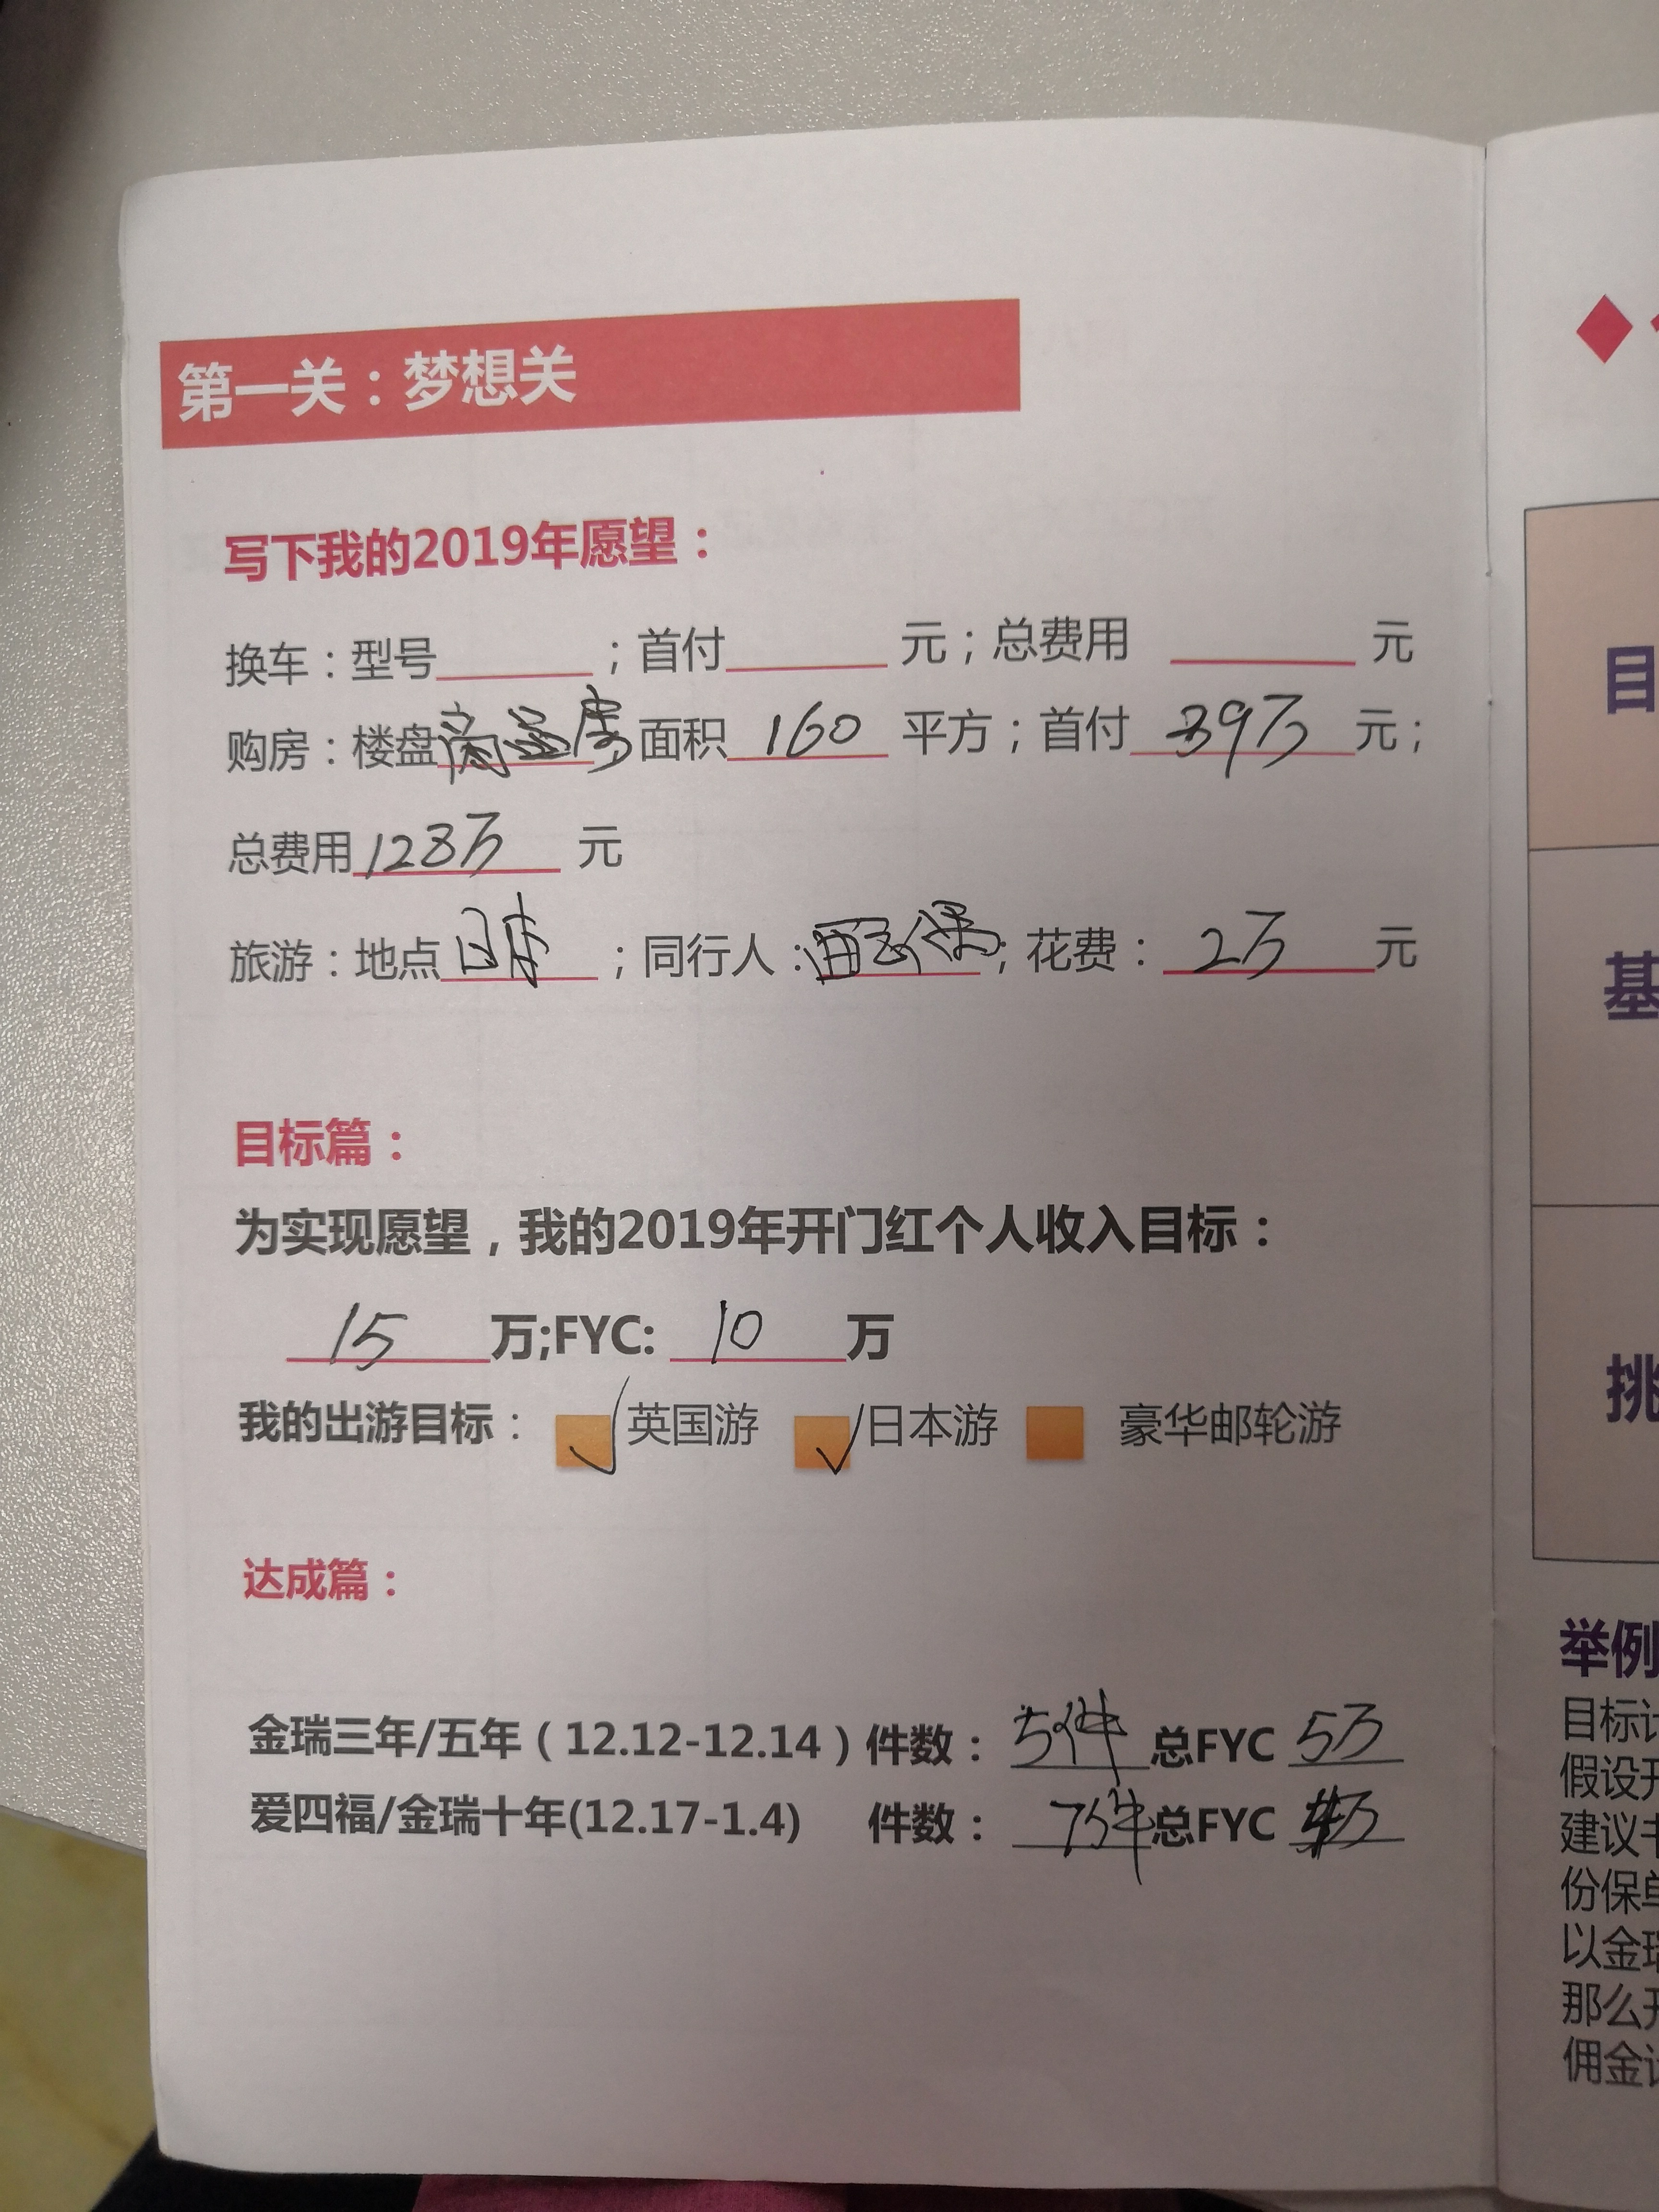 第一关：梦想关
写下我的2019年愿望：
换车：型号______；首付______元；总费用______元
购房：楼盘 面积 160 平方；首付 39万 元；
总费用 128万 元
旅游：地点 日本 ；同行人： ；花费： 2万 元
目标篇：
为实现愿望，我的2019年开门红个人收入目标：
15 万;FYC: 10 万
我的出游目标： ✓ 英国游 ✓ 日本游 豪华邮轮游
达成篇：
金瑞三年/五年（12.12-12.14）件数： 5件 总FYC 5万
爱四福/金瑞十年(12.17-1.4) 件数： 总FYC
目
基
挑
举例
目标计
假设开
建议书
份保单
以金瑞
那么开
佣金计